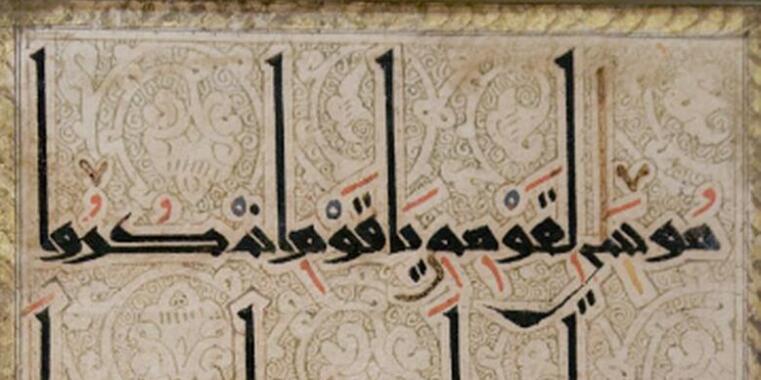 مُوسَى لِقَوْمِهِ يَا قَوْمِ اذْكُرُوا